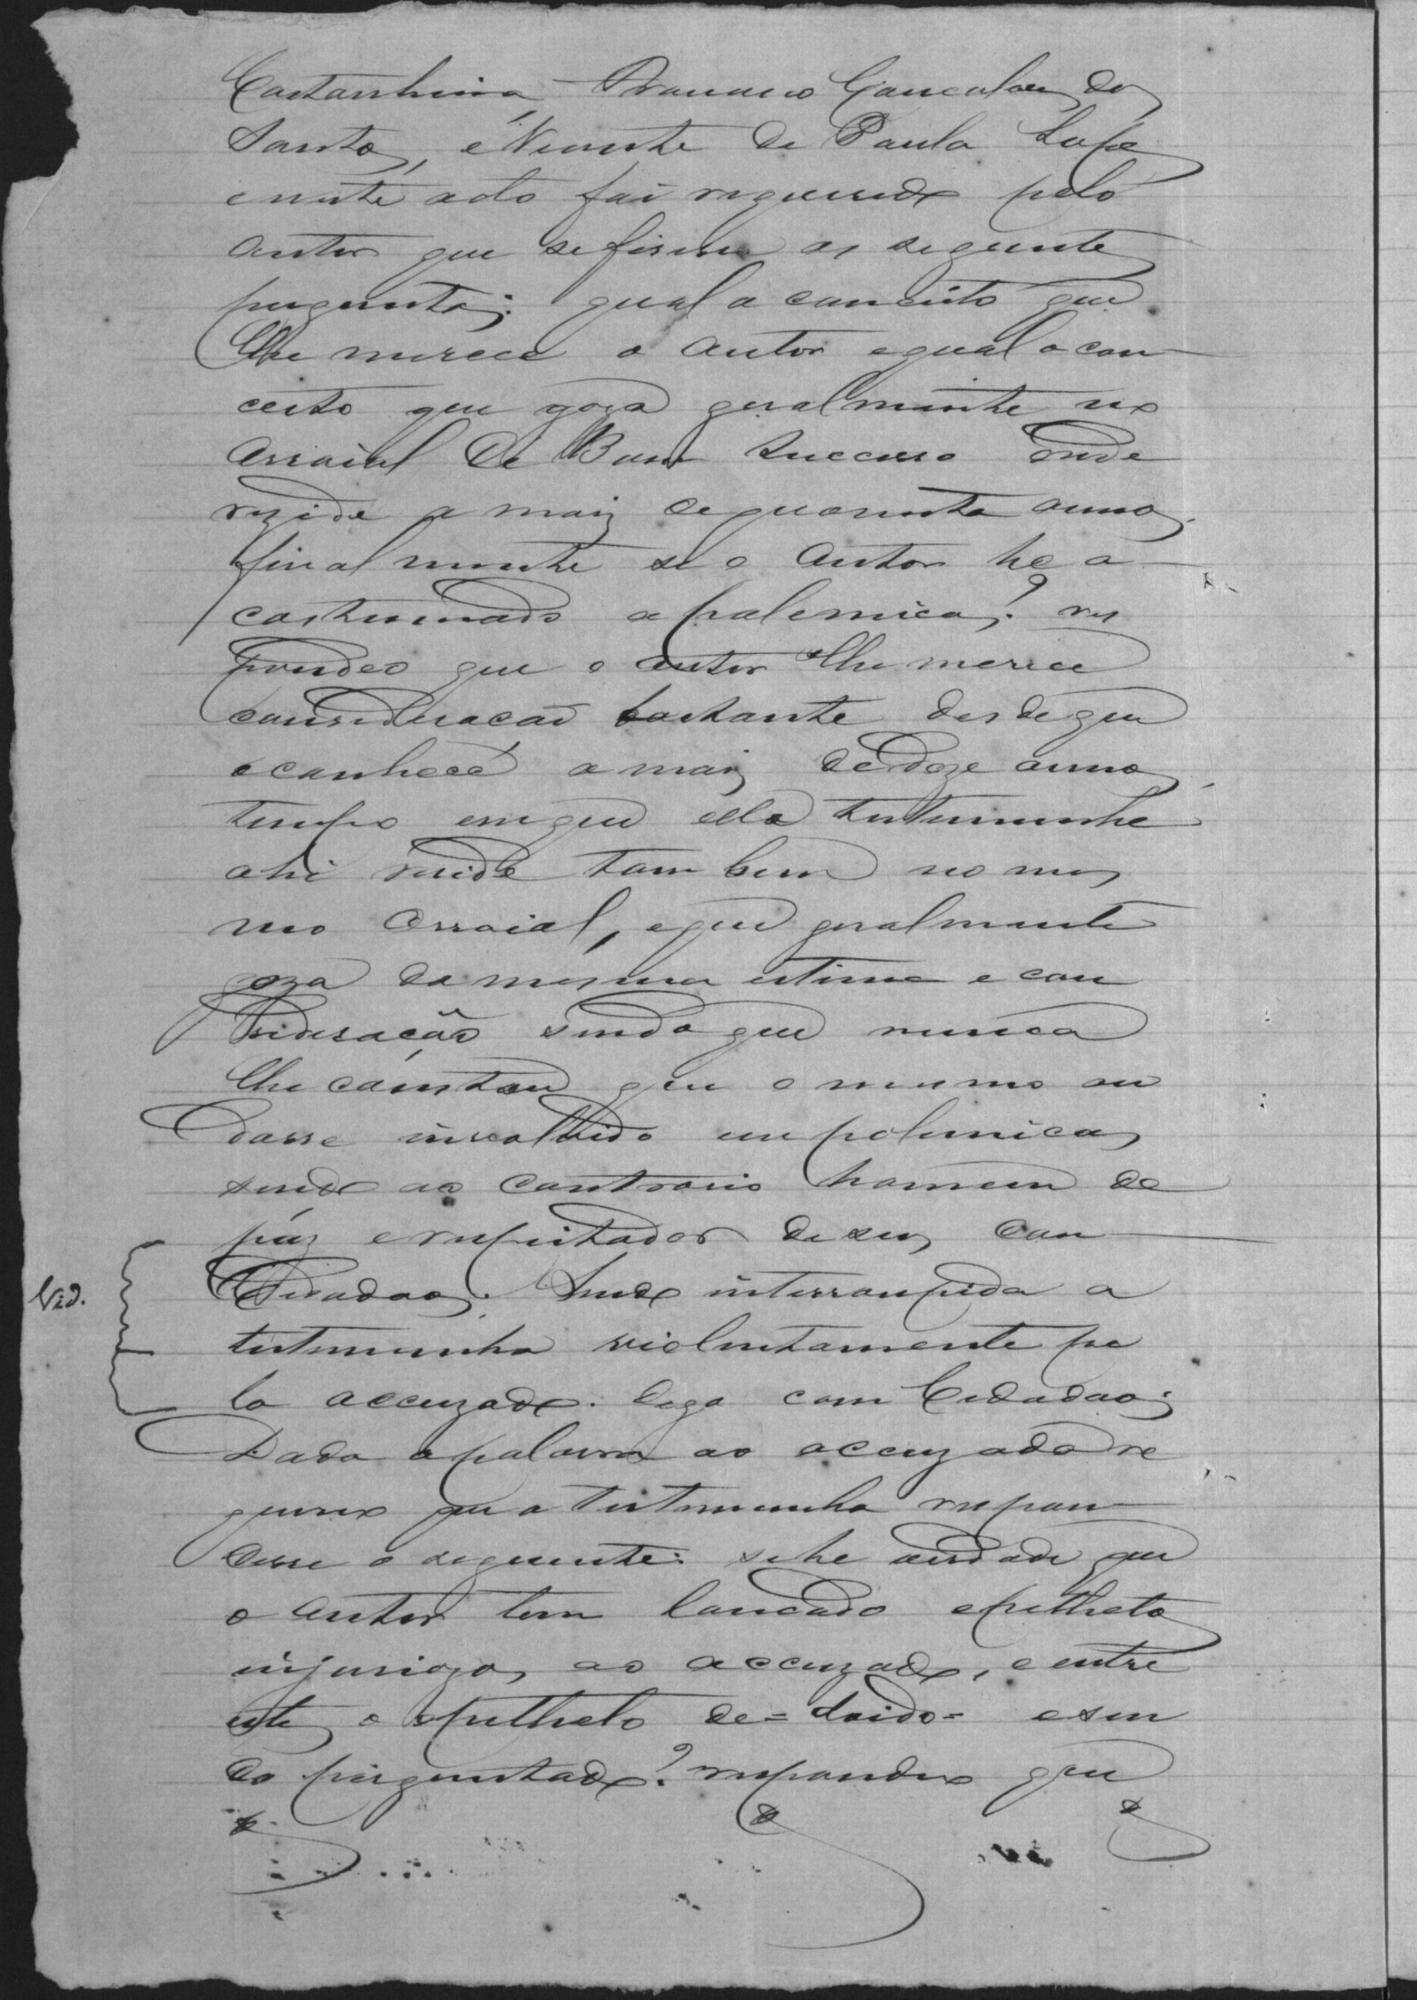 Castanheira, Francisco Gonçalves dos
Santos, e Vicente de Paula Lopes
e neste acto foi requerido pelo
autor que se fisesse as seguintes
perguntas: qual o conceito que
lhe merece o autor e qual o con
ceito que goza geralmente no
Arraial de Bom Successo onde
rezide a mais de quarenta annos,
finalmente se o autor he a
costumado a polemicas? res
pondeo que o autor lhe merece
consideracaõ bastante desde que
o conhece a mais de doze annos
tempo em que ella testemunha
ahi reside tambem no mes
mo Arraial, e que geralmente
goza da mesma estima e con
sideração sendo que nunca
lhe constou que o mesmo an
dasse involvido em polemicas
sendo ao contrario homem de
páz e respeitador de seus Con
Cidadaos. Sendo interrompida a
testemunha violentamente pe
lo accuzado. digo com Cidadaos;
Dada a palavra ao accuzado re
quereo que a testemunha respon
desse o seguinte: se he verdade que
o autor tem lancado epithetos
injuriozos ao accuzado, e entre
estes o epitheto de = doido = e sen
do perguntado? respondeo que
Vid.